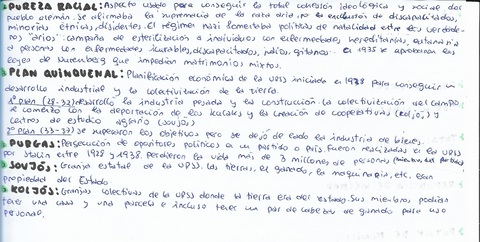 PUREZA RACIAL: Aspecto usado para conseguir la total cohesión ideológica y social del
pueblo alemán. se afirmaba la supremacía de la raza aria con la exclusión de discapacitados,
minorías étnicas, disidentes. El régimen nazi fomentaba políticas de natalidad entre los verdade-
ros "arios": campaña de esterilización a individuos con enfermedades hereditarias, eutanasia
a personas con enfermedades incurables, discapacitados, judíos, gitanos. El 1935 se aprobaron las
leyes de Nuremberg que impedían matrimonios mixtos.
PLAN QUINQUENAL: Planificación económica de la URSS iniciada en 1928 para conseguir un
desarrollo industrial y la colectivización de la tierra.
1º PLAN (28-32) desarrolló la industria pesada y la construcción. La colectivización del campo
se comenzó con la deportación de los kulaks y la creación de cooperativas (koljós) y
centros de estudio agrario (sovjós)
2º PLAN (33-37) se superaron los objetivos pero se dejó de lado la industria de bienes.
PURGAS: Persecución de opositores políticos a un partido o país. Fueron realizadas en la URSS
por Stalin entre 1928 y 1938. Perdieron la vida más de 3 millones de personas
SOVJÓS: Granja estatal de la URSS. Las tierras, el ganado, la maquinaria, etc. eran
propiedad del Estado
KOLJÓS: Granjas colectivas de la URSS donde la tierra era del estado. Sus miembros podían
tener una casa y una parcela e incluso tener un par de cabezas de ganado para uso
personal.